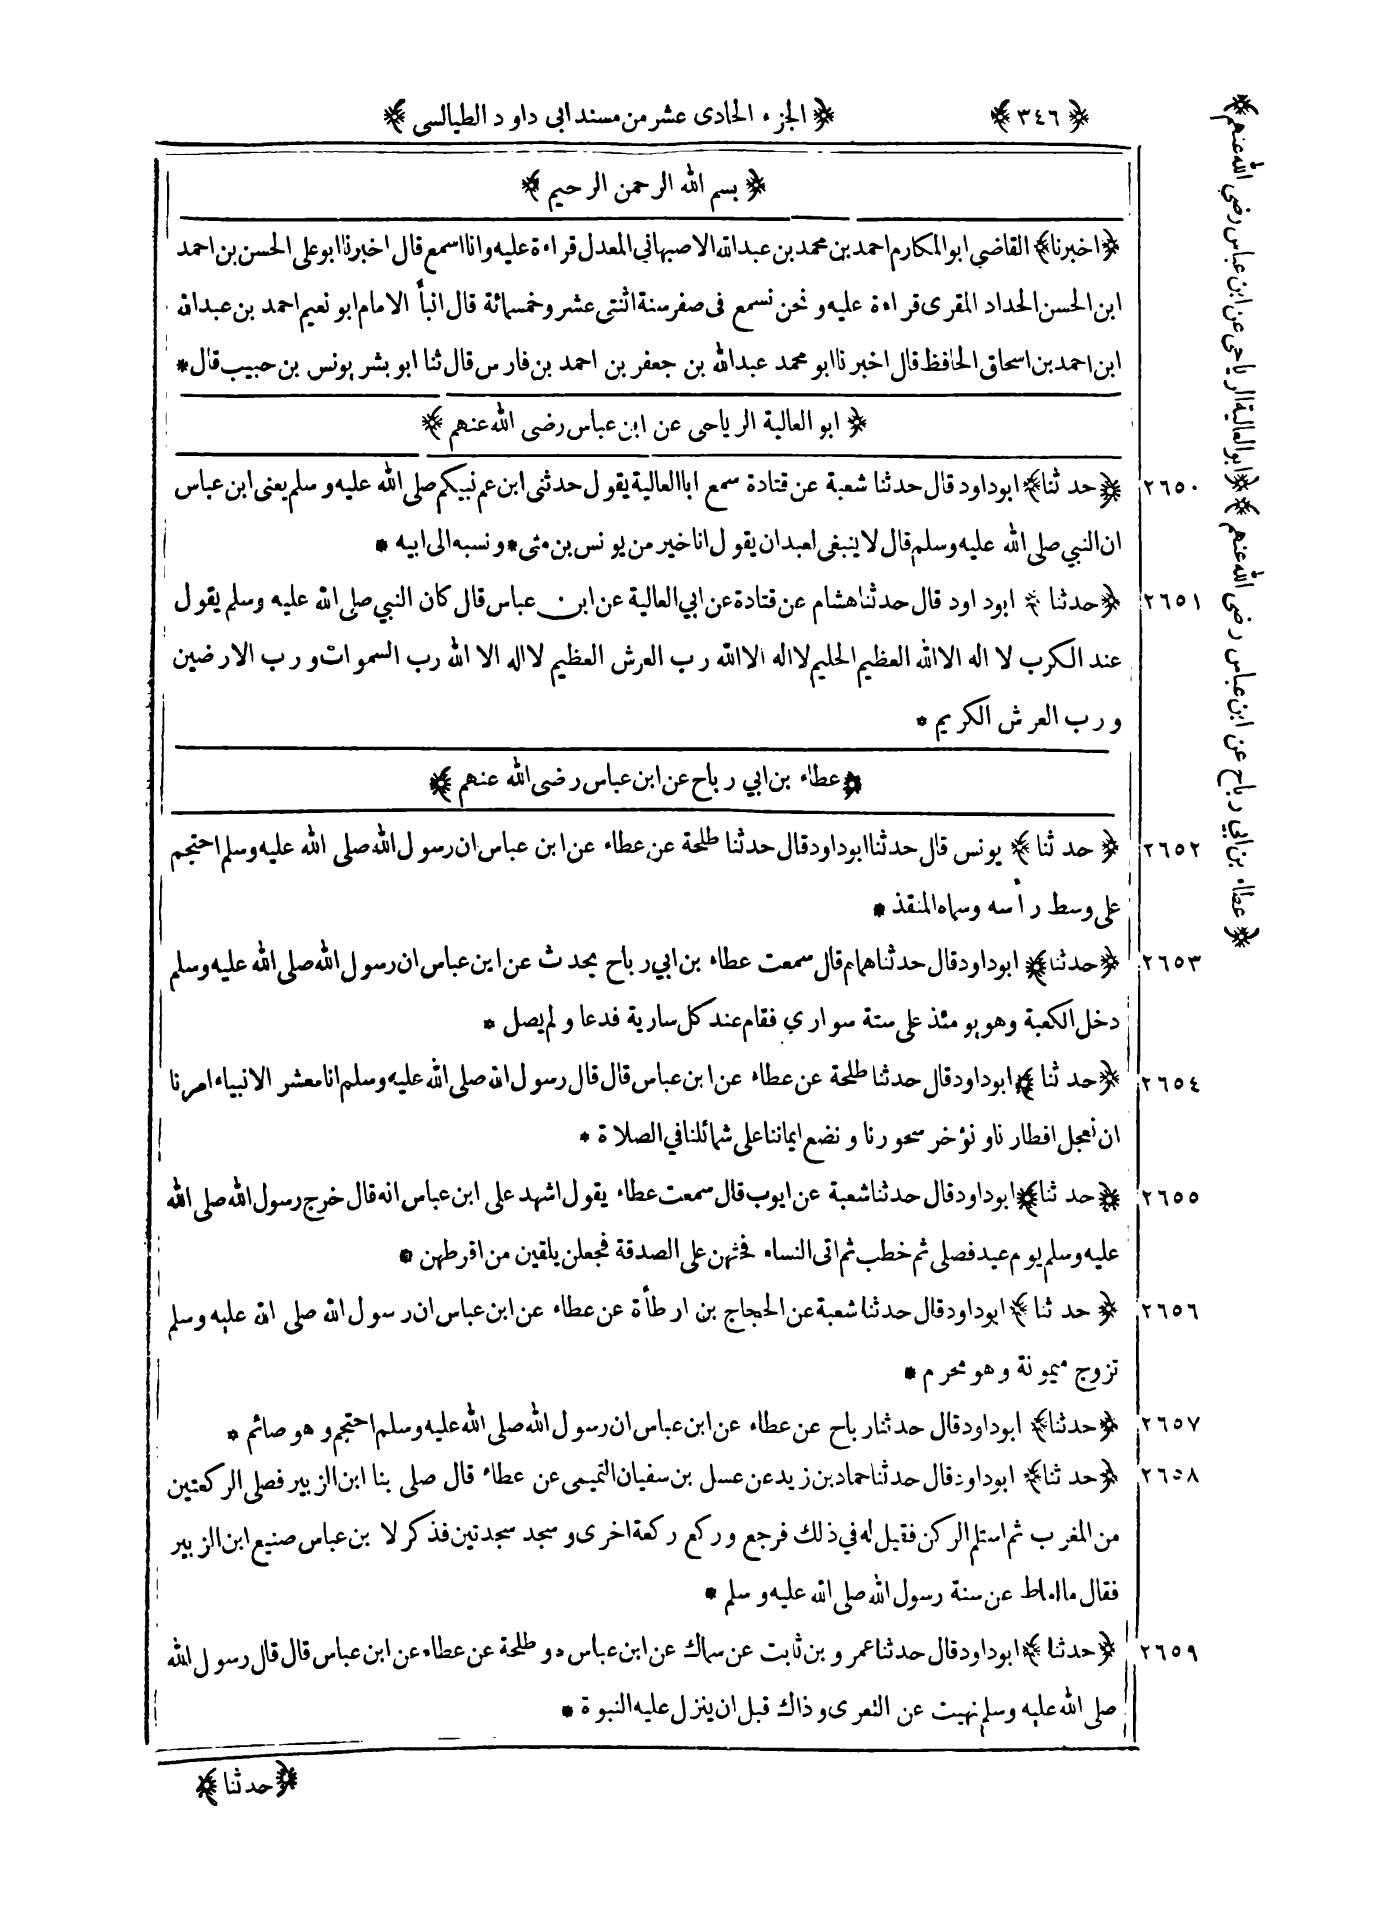 ﴿ ٣٤٦ ﴾ ﴿ الجزء الحادى عشر من مسند ابى داود الطيالسى ﴾
﴿ بسم الله الرحمن الرحيم ﴾
﴿ اخبرنا ﴾ القاضي ابو المكارم احمد بن محمد بن عبدالله الاصبهاني المعدل قراءة عليه وانا اسمع قال اخبرنا ابو على الحسن بن احمد
ابن الحسن الحداد المقرى قراءة عليه ونحن نسمع فى صفر سنة اثنتى عشر وخمسمائة قال انبأ الامام ابو نعيم احمد بن عبدالله
ابن احمد بن اسحاق الحافظ قال اخبرنا ابو محمد عبدالله بن جعفر بن احمد بن فارس قال ثنا ابو بشر يونس بن حبيب قال *
﴿ ابو العالية الرياحى عن ابن عباس رضى الله عنهم ﴾
٢٦٥٠ ﴿ حدثنا ﴾ ابوداود قال حدثنا شعبة عن قتادة سمع ابا العالية يقول حدثنى ابن عم نبيكم صلى الله عليه وسلم يعنى ابن عباس
ان النبي صلى الله عليه وسلم قال لا ينبغى لعبد ان يقول انا خير من يونس بن متى * ونسبه الى ابيه *
٢٦٥١ ﴿ حدثنا ﴾ ابوداود قال حدثنا هشام عن قتادة عن ابي العالية عن ابن عباس قال كان النبي صلى الله عليه وسلم يقول
عند الكرب لا اله الا الله العظيم الحليم لا اله الا الله رب العرش العظيم لا اله الا الله رب السموات ورب الارضين
ورب العرش الكريم *
﴿ عطاء بن ابي رباح عن ابن عباس رضى الله عنهم ﴾
٢٦٥٢ ﴿ حدثنا ﴾ يونس قال حدثنا ابوداود قال حدثنا طلحة عن عطاء عن ابن عباس ان رسول الله صلى الله عليه وسلم احتجم
على وسط رأسه وسماه المنقذ *
٢٦٥٣ ﴿ حدثنا ﴾ ابوداود قال حدثنا همام قال سمعت عطاء بن ابي رباح يحدث عن ابن عباس ان رسول الله صلى الله عليه وسلم
دخل الكعبة وهو يومئذ على ستة سواري فقام عند كل سارية فدعا ولم يصل *
٢٦٥٤ ﴿ حدثنا ﴾ ابوداود قال حدثنا طلحة عن عطاء عن ابن عباس قال قال رسول الله صلى الله عليه وسلم انا معشر الانبياء امرنا
ان نعجل افطارنا ونؤخر سحورنا ونضع ايماننا على شمائلنا في الصلاة *
٢٦٥٥ ﴿ حدثنا ﴾ ابوداود قال حدثنا شعبة عن ايوب قال سمعت عطاء يقول اشهد على ابن عباس انه قال خرج رسول الله صلى الله
عليه وسلم يوم عيد فصلى ثم خطب ثم اتى النساء فحثهن على الصدقة فجعلن يلقين من اقرطهن *
٢٦٥٦ ﴿ حدثنا ﴾ ابوداود قال حدثنا شعبة عن الحجاج بن ارطأة عن عطاء عن ابن عباس ان رسول الله صلى الله عليه وسلم
تزوج ميمونة وهو محرم *
٢٦٥٧ ﴿ حدثنا ﴾ ابوداود قال حدثنا رباح عن عطاء عن ابن عباس ان رسول الله صلى الله عليه وسلم احتجم وهو صائم *
٢٦٥٨ ﴿ حدثنا ﴾ ابوداود قال حدثنا حماد بن زيد عن عسل بن سفيان التميمى عن عطاء قال صلى بنا ابن الزبير فصلى الركعتين
من المغرب ثم استلم الركن فقيل له في ذلك فرجع وركع ركعة اخرى وسجد سجدتين فذكر لا بن عباس صنيع ابن الزبير
فقال ما اماط عن سنة رسول الله صلى الله عليه وسلم *
٢٦٥٩ ﴿ حدثنا ﴾ ابوداود قال حدثنا عمرو بن ثابت عن سماك عن ابن عباس ء وطلحة عن عطاء عن ابن عباس قال قال رسول الله
صلى الله عليه وسلم نهيت عن التعرى وذاك قبل ان ينزل عليه النبوة *
﴿ حدثنا ﴾
﴿ ابو العالية الرياحى عن ابن عباس رضي الله عنهم ﴾
﴿ عطاء بن ابي رباح عن ابن عباس رضى الله عنهم ﴾